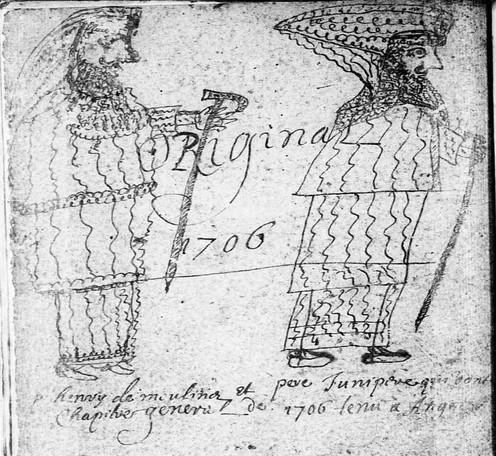 Original
1706
p henry de mouliner et pere Junipere qui vont
Chapitre general de 1706 tenu a